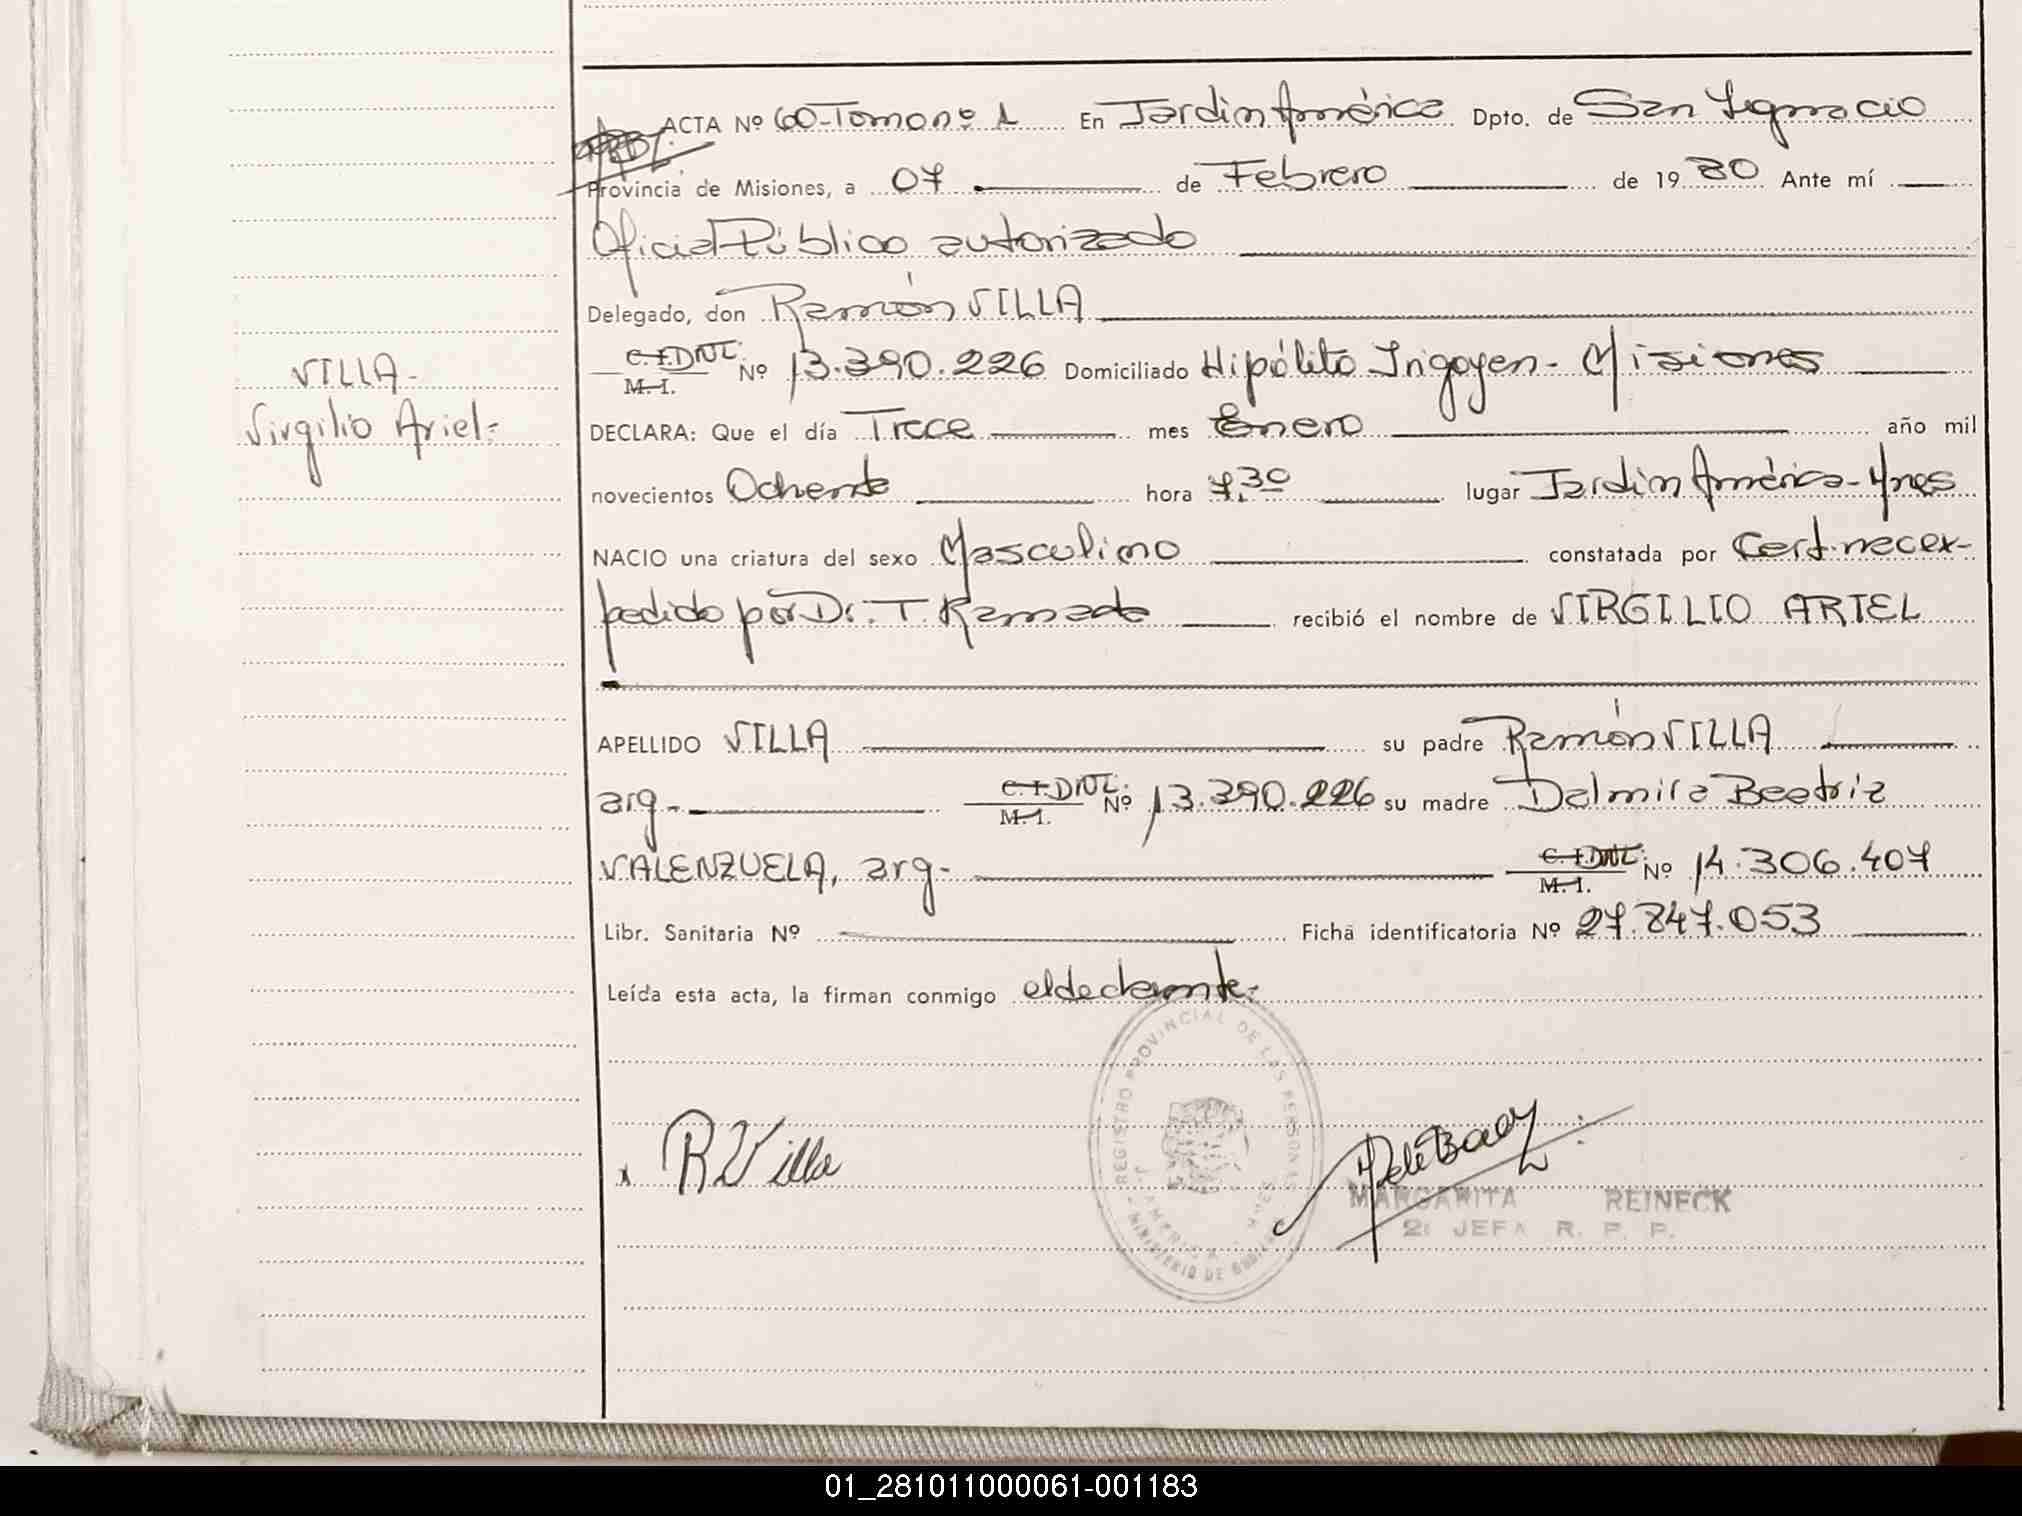 ACTA Nº 60-Tomo nº 1 En Jardín América Dpto. de San Ignacio
Provincia de Misiones, a 07 de Febrero de 1980 Ante mí
Oficial Público autorizado
Delegado, don Ramón VILLA
C. I. DNI. M. I. Nº 13.390.226 Domiciliado Hipólito Irigoyen - Misiones
VILLA-
Virgilio Ariel-
DECLARA: Que el día Trece mes Enero año mil
novecientos Ochenta hora 7,30 lugar Jardín América-Mnes
NACIO una criatura del sexo Masculino constatada por Cert. nec ex-
pedido por Dr. T. Ramada recibió el nombre de VIRGILIO ARIEL
APELLIDO VILLA su padre Ramón VILLA
arg- C. I. DNI. M. I. Nº 13.390.226 su madre Dalmira Beatriz
VALENZUELA, arg- C. I. DNI. M. I. Nº 14.306.407
Libr. Sanitaria Nº Ficha identificatoria Nº 27.847.053
Leída esta acta, la firman conmigo el declarante-
REGISTRO PROVINCIAL DE LAS PERSONAS
MINISTERIO DE
x RVilla
MARGARITA REINECK
2: JEFA R. P. P.
01_281011000061-001183